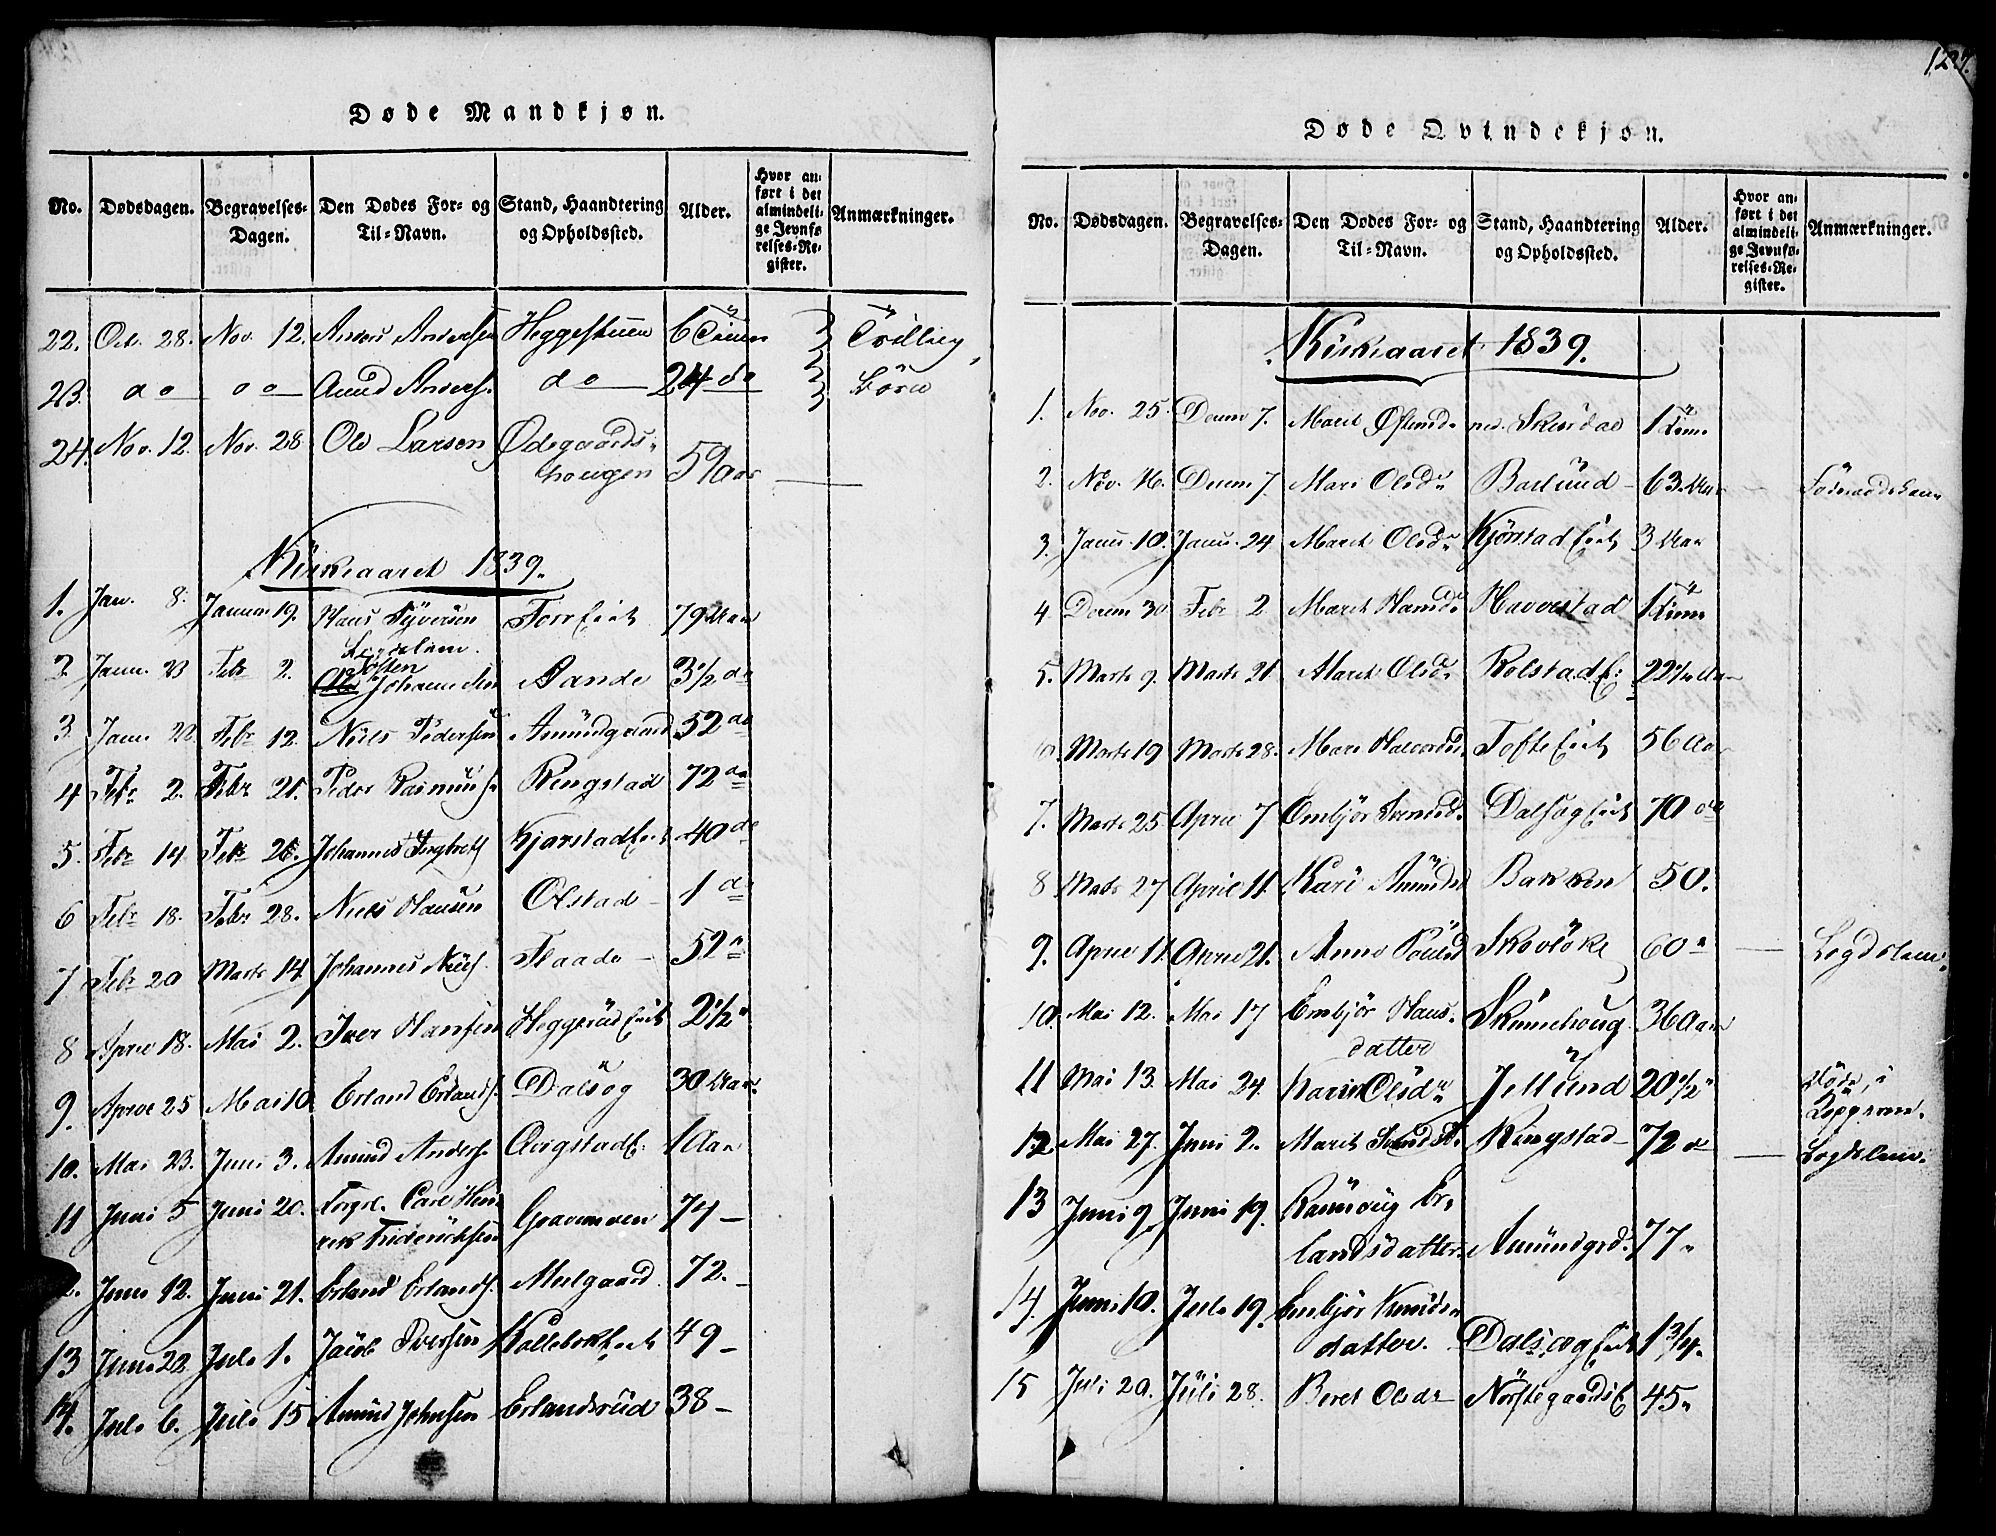 Døde Mandkjøn.
No. Dødsdagen. Begravelses-Dagen. Den Dødes For- og Til-Navn. Stand, Haandtering og Opholdssted. Alder. Hvor anført i det almindelige Jevnførelses-Register. Anmærkninger.
22. Oct. 28. Nov. 12. Anders Andersen Heggestuen 6 Timer Tvilling
23. do do Amund Anders. do 24 do Børn
24. Nov. 12. Nov. 28 Ole Larsen Ødegaards-
hougen 59 Aar
Kirkeaaret 1839.
1. Jan. 8. Januar 19. Hans Syversen Torr Eiet 79 Aar
Legdslem.
2. Janu. 23 Febr 2. Toften
Johannesen Sande 3 1/2 do
3. Janu. 22. Febr 12. Niels Pedersen Amundgaard 52 do
4 Febr 2. Febr 21. Peder Rasmus. Ringstad 72 do
5. Febr 14 Febr 26. Johannes Ingbrets Kjørstad Eiet 40 do
6 Febr 18. Febr 28. Niels Hansen Olstad 1 do
7 Febr 20 Marts 14. Johannes Niels. Flaade 52 "
8 April 18. Mai 2. Iver Hansen Heggerud Eiet 2 1/2 "
9. April 25 Mai 10. Erland Erlands. Dalsøg 30 Aar
10. Mai 23. Juni 3. Amund Anders. Qvigstad E. 1 Aar
11 Juni 5 Juni 20. Forgl. Carl Hen-
rik Frideriksen Graven 74
12. Juni 12. Juni 21. Erland Erlands. Melgaard 72.
13 Juni 22. Juli 1. Jacob Iversen Kollebok Eiet 49
14. Juli 6. Juli 15 Amund Johnsen Erlandsrud 38
127.
Døde Qvindekjøn.
No. Dødsdagen. Begravelses-Dagen. Den Dødes For- og Til-Navn. Stand, Haandtering og Opholdssted. Alder. Hvor anført i det almindelige Jevnførelses-Register. Anmærkninger.
Kirkeaaret 1839.
1. Nov. 25. Decem 7. Marit Østensd. ned. Skurdal 1 Time
2. Nov. 16. Decem 7. Mari Olsdr Baslund 63 Aar Føderaadskone
3. Janu. 10. Janu. 24 Marit Olsdr Kjørstad Eiet 3 Aar
4 Decem 30 Febr 2 Marit Hansdr Haverstad 1 Time
5. Marts 9. Marts 21. Marit Olsdr Rolstad E. 22 1/2 Aar
6 Marts 19 Marts 28. Mari Halvorsd. Tofte Eiet 56 Aar
7. Marts 25 April 7 Embjør Svensd. Dalsøg Eiet 70 do
8 Marts 27 April 11. Kari Amunds Bakken 50.
9. April 11. April 21. Anne Poulsd Skovløke 60 " Legdslem.
10. Mai 12. Mai 17 Embjør Hans-
datter Skunehoug 36 Aar
11 Mai 13. Mai 24. Kari Olsdr Jetlund 20 1/2 " Døde i
12 Mai 27. Juni 2. Marit Ringstad 72 do Legdslem.
13 Juni 9. Juni 19. Rannvug Er-
landsdatter. Amundgrd. 77 "
14. Juni 10. Juli 19. Embjør Knuds-
datter. Dalsøg Eiet 1 3/4.
15 Juli 20. Juli 28. Beret Olsdr Nørstegaards E 45 "